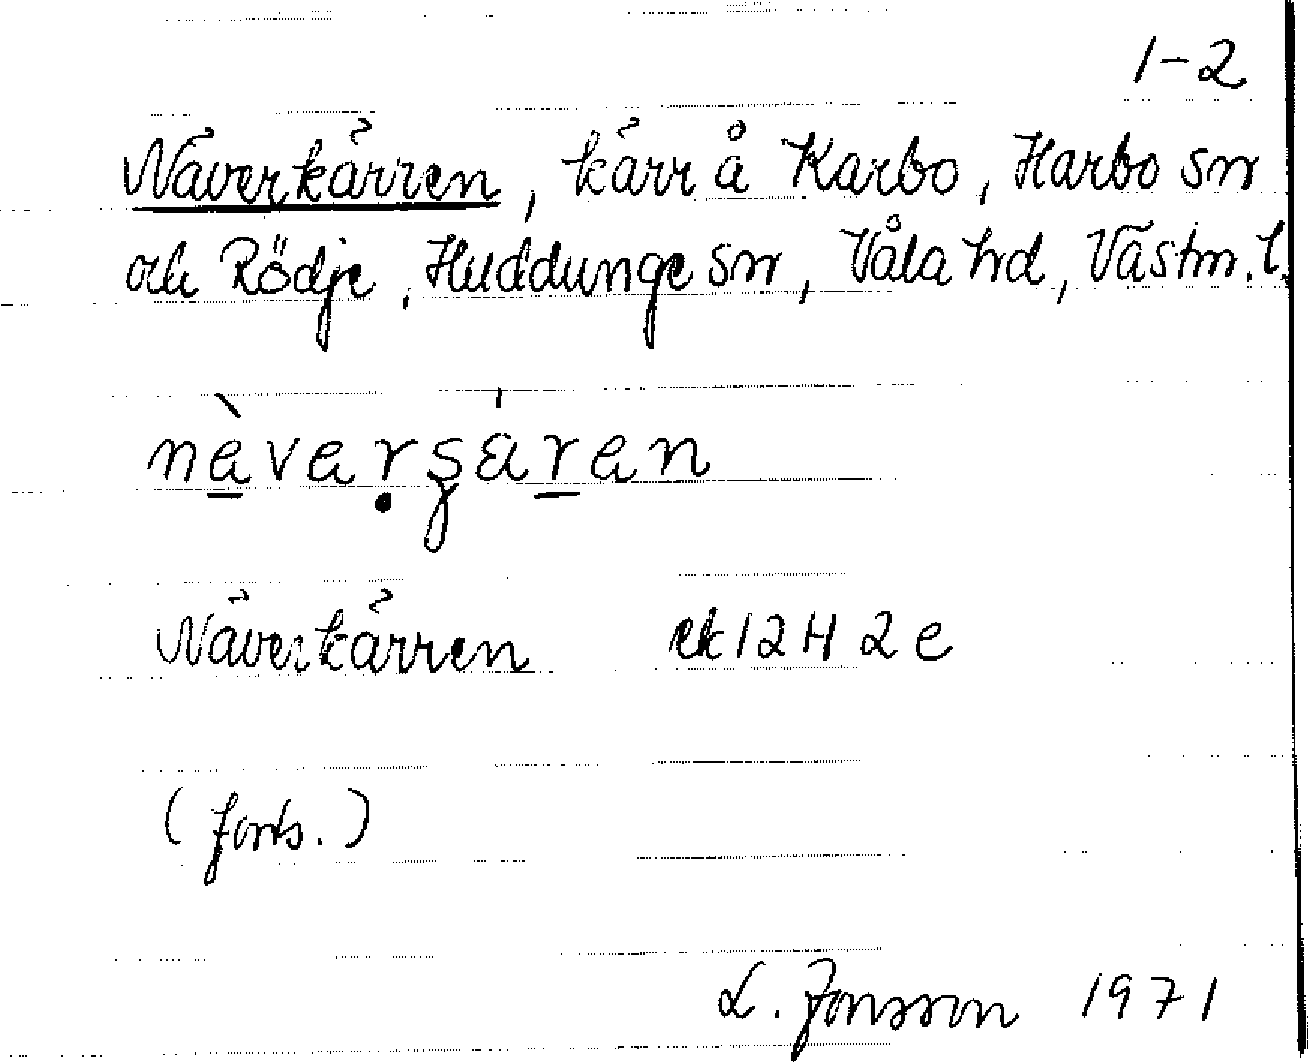 1-2
Näverkärren, kärr å Karbo, Harbo sn
och Rödje, Huddunge sn, Våla hd, Västm. l.
Näverkärren ek 12 H 2 e
(forts.)
L. Jonsson 1971